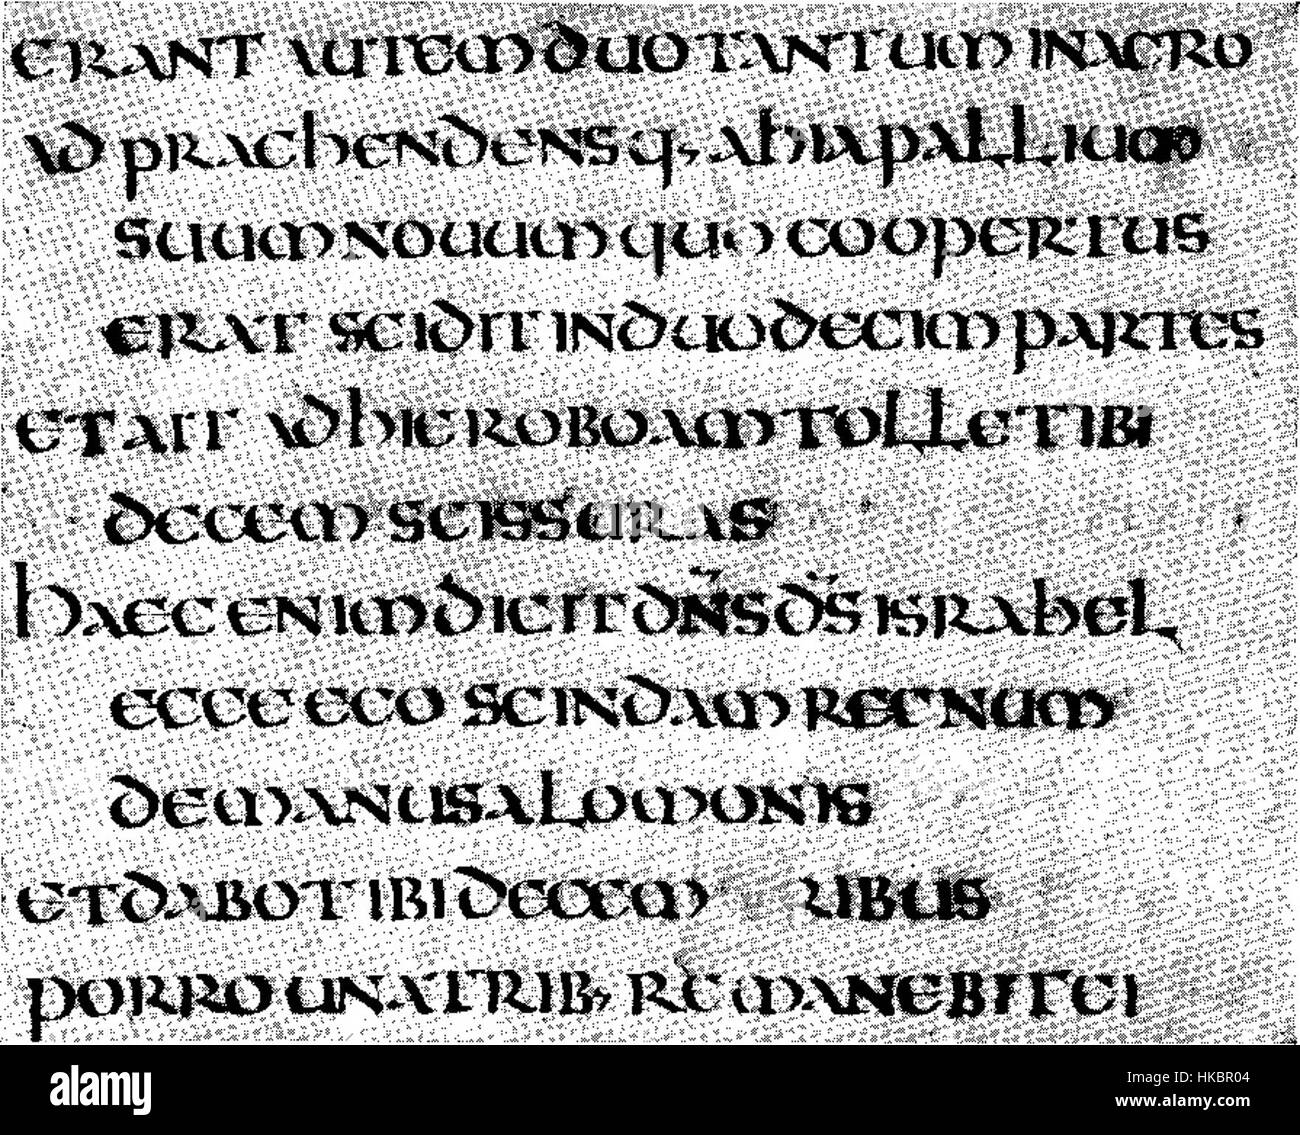 ERANT AUTEM DUO TANTUM IN AGRO
ADPRAEHENDENSQ; AHIA PALLIUM
SUUM NOUUM QUO COOPERTUS
ERAT SCIDIT IN DUODECIM PARTES
ET AIT AD HIEROBOAM TOLLE TIBI
DECEM SCISSURAS
HAEC ENIM DICIT DÑS DS̄ ISRAHEL
ECCE EGO SCINDAM REGNUM
DE MANU SALOMONIS
ET DABO TIBI DECEM RIBUS
PORRO UNA TRIB; REMANEBIT EI
alamy
Image ID: HKBR04
www.alamy.com